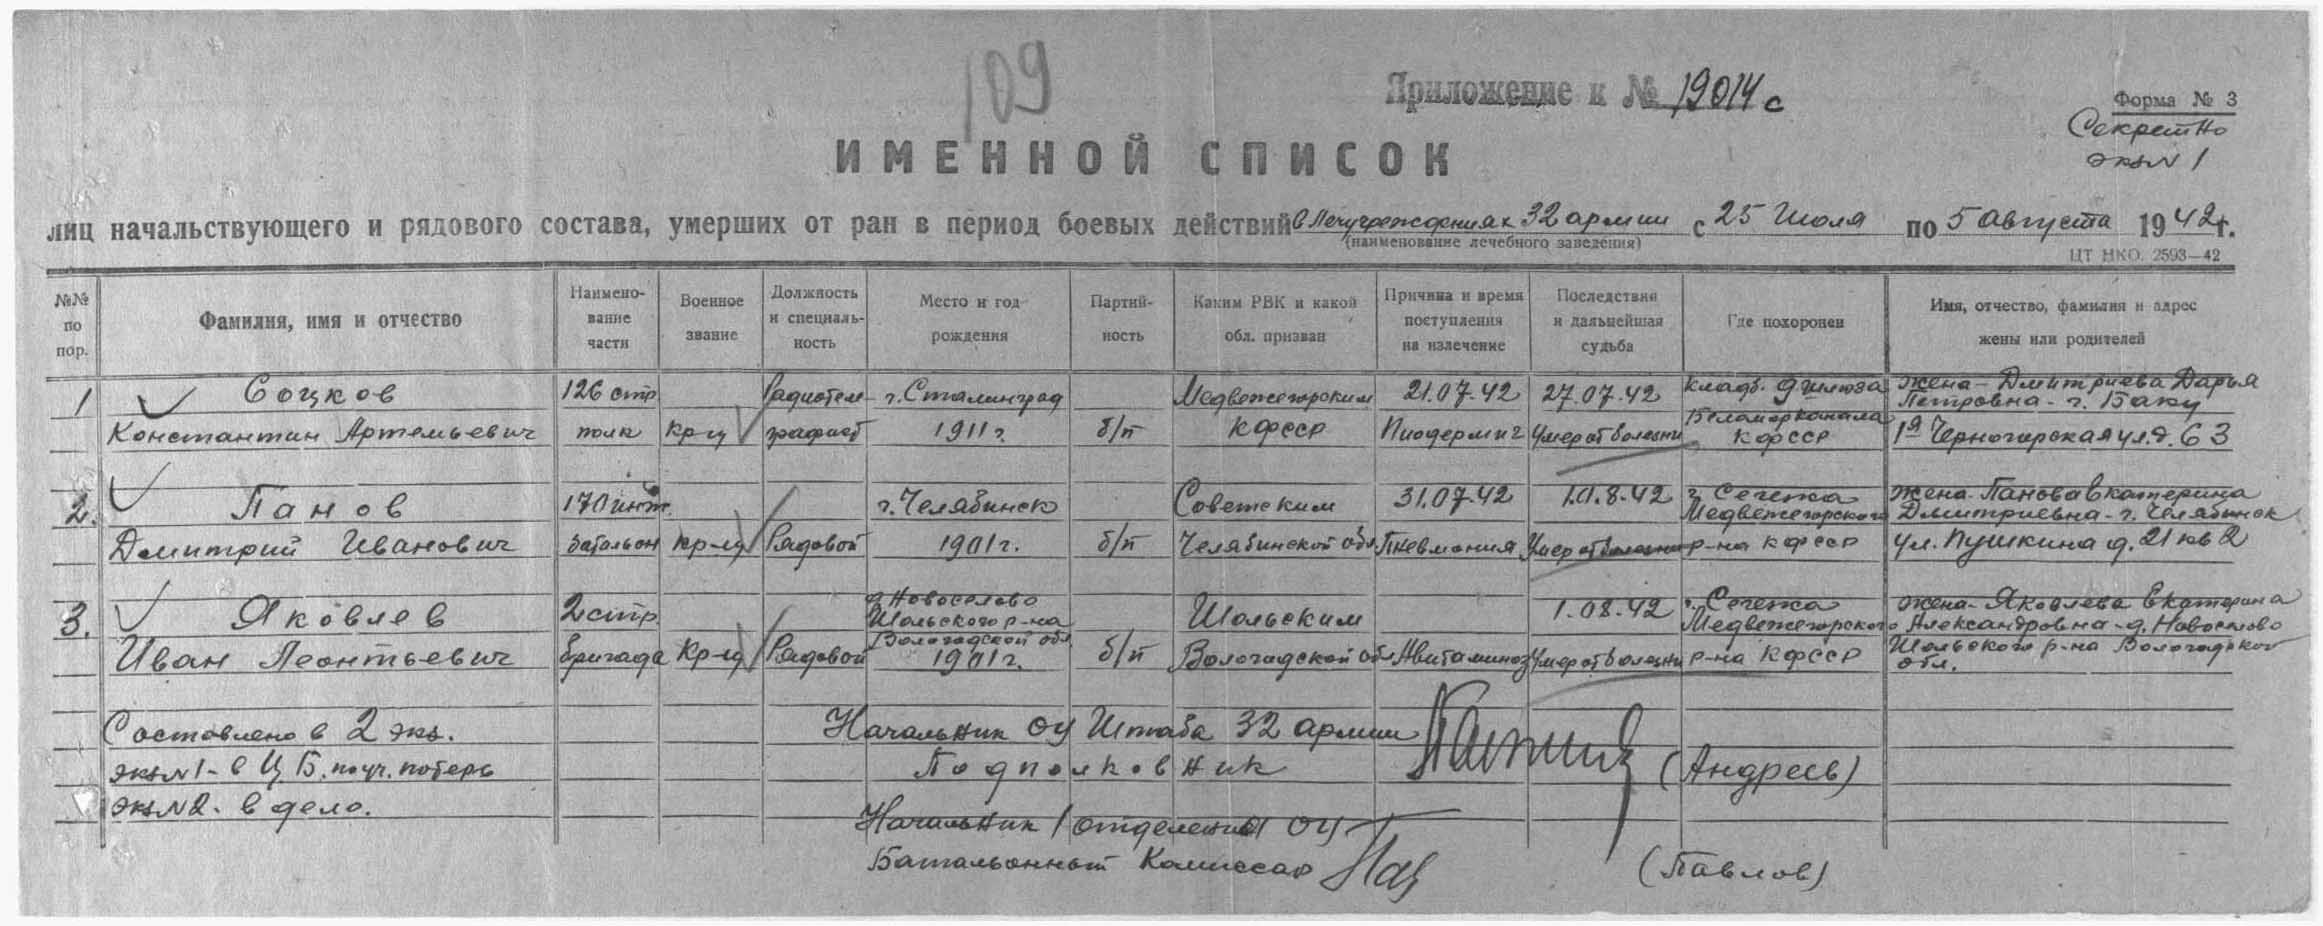 109
Приложение к № 19014с
Форма № 3
Секретно
экз N 1
ИМЕННОЙ СПИСОК
лиц начальствующего и рядового состава, умерших от ран в период боевых действий в Лечучреждениях 32 армии с 25 Июля по 5 Августа 1942г.
(наименование лечебного заведения)
ЦТ НКО. 2593—42
№№ по пор.
Фамилия, имя и отчество
Наимено-вание части
Военное звание
Должность и специаль-ность
Место и год рождения
Партий-ность
Каким РВК и какой обл. призван
Причина и время поступления на излечение
Последствия и дальнейшая судьба
Где похоронен
Имя, отчество, фамилия и адрес жены или родителей
1 Соцков 126 стр. Радиотеле- г. Сталинград Медвежегорским 21.07.42 27.07.42 кладб. 9 шлюза жена - Дмитриева Дарья
Беломорканала Петровна - г. Баку
Константин Артемьевич полк кр-ц графист 1911 г. б/п КФССР Пиодермит Умер от болезни КФССР 1я Черногорская ул. д. 63
2. Панов 170 инж. г. Челябинск Советским 31.07.42 1.0.8.42 г. Сегежа жена - Панова Екатерина
Медвежегорского Дмитриевна - г. Челябинск
Дмитрий Иванович батальон кр-ц Рядовой 1901 г. б/п Челябинской обл Пневмония Умер от болезни р-на КФССР ул. Пушкина д. 21 кв 2
3. Яковлев 2 стр. д. Новоселово Шольским 1.08.42 г. Сегежа жена - Яковлева Екатерина
Шольского р-на Медвежегорского Александровна - д. Новоселово
Вологодской обл
Иван Леонтьевич бригада Кр-ц Рядовой 1901 г. б/п Вологодской обл Авитаминоз Умер от болезни р-на КФССР Шольского р-на Вологодской
обл.
Составлено в 2 экз. Начальник ОУ Штаба 32 армии
экз N1 - в ЦБ. по уч. потерь Подполковник (Андреев)
экз N2 - в дело.
Начальник 1 отделения ОУ
Батальонный Комиссар (Павлов)